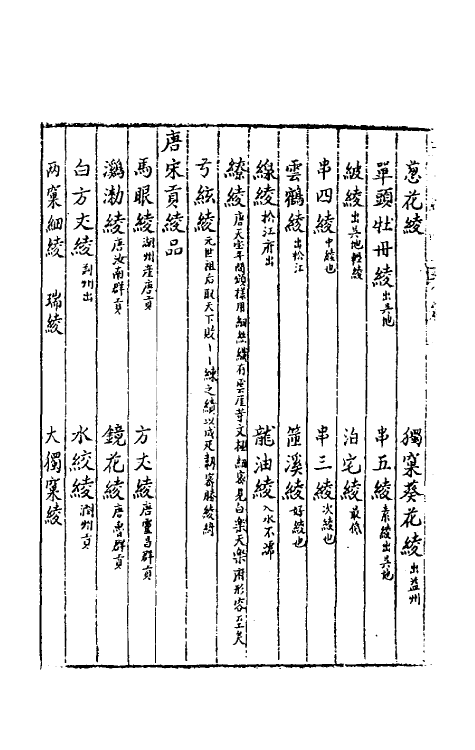 蔥花綾 獨窠葵花綾出益州
單頭牡丹綾出吳地 串五綾素綾出吳地
紴綾出吳地輕綾 泊宅綾最低
串四綾中綾也 串三綾次綾也
雲鶴綾出松江 篁溪綾好綾也
線綾松江府出 龍油綾入水不濡
繚綾唐天宝年間頒樣用細丝織有雲厓等文極細密見白樂天樂府形容工矣
弓絃綾元世祖后取天下敗弓弓練之績以成疋靱密勝綾綺
唐宋貢綾品
馬眼綾湖州產唐貢 方丈綾唐靈昌群貢
鸂灂綾唐汝南群貢 鏡花綾唐魯群貢
白方丈綾荆州出 水紋綾潤州貢
兩窠細綾 瑞綾 大獨窠綾